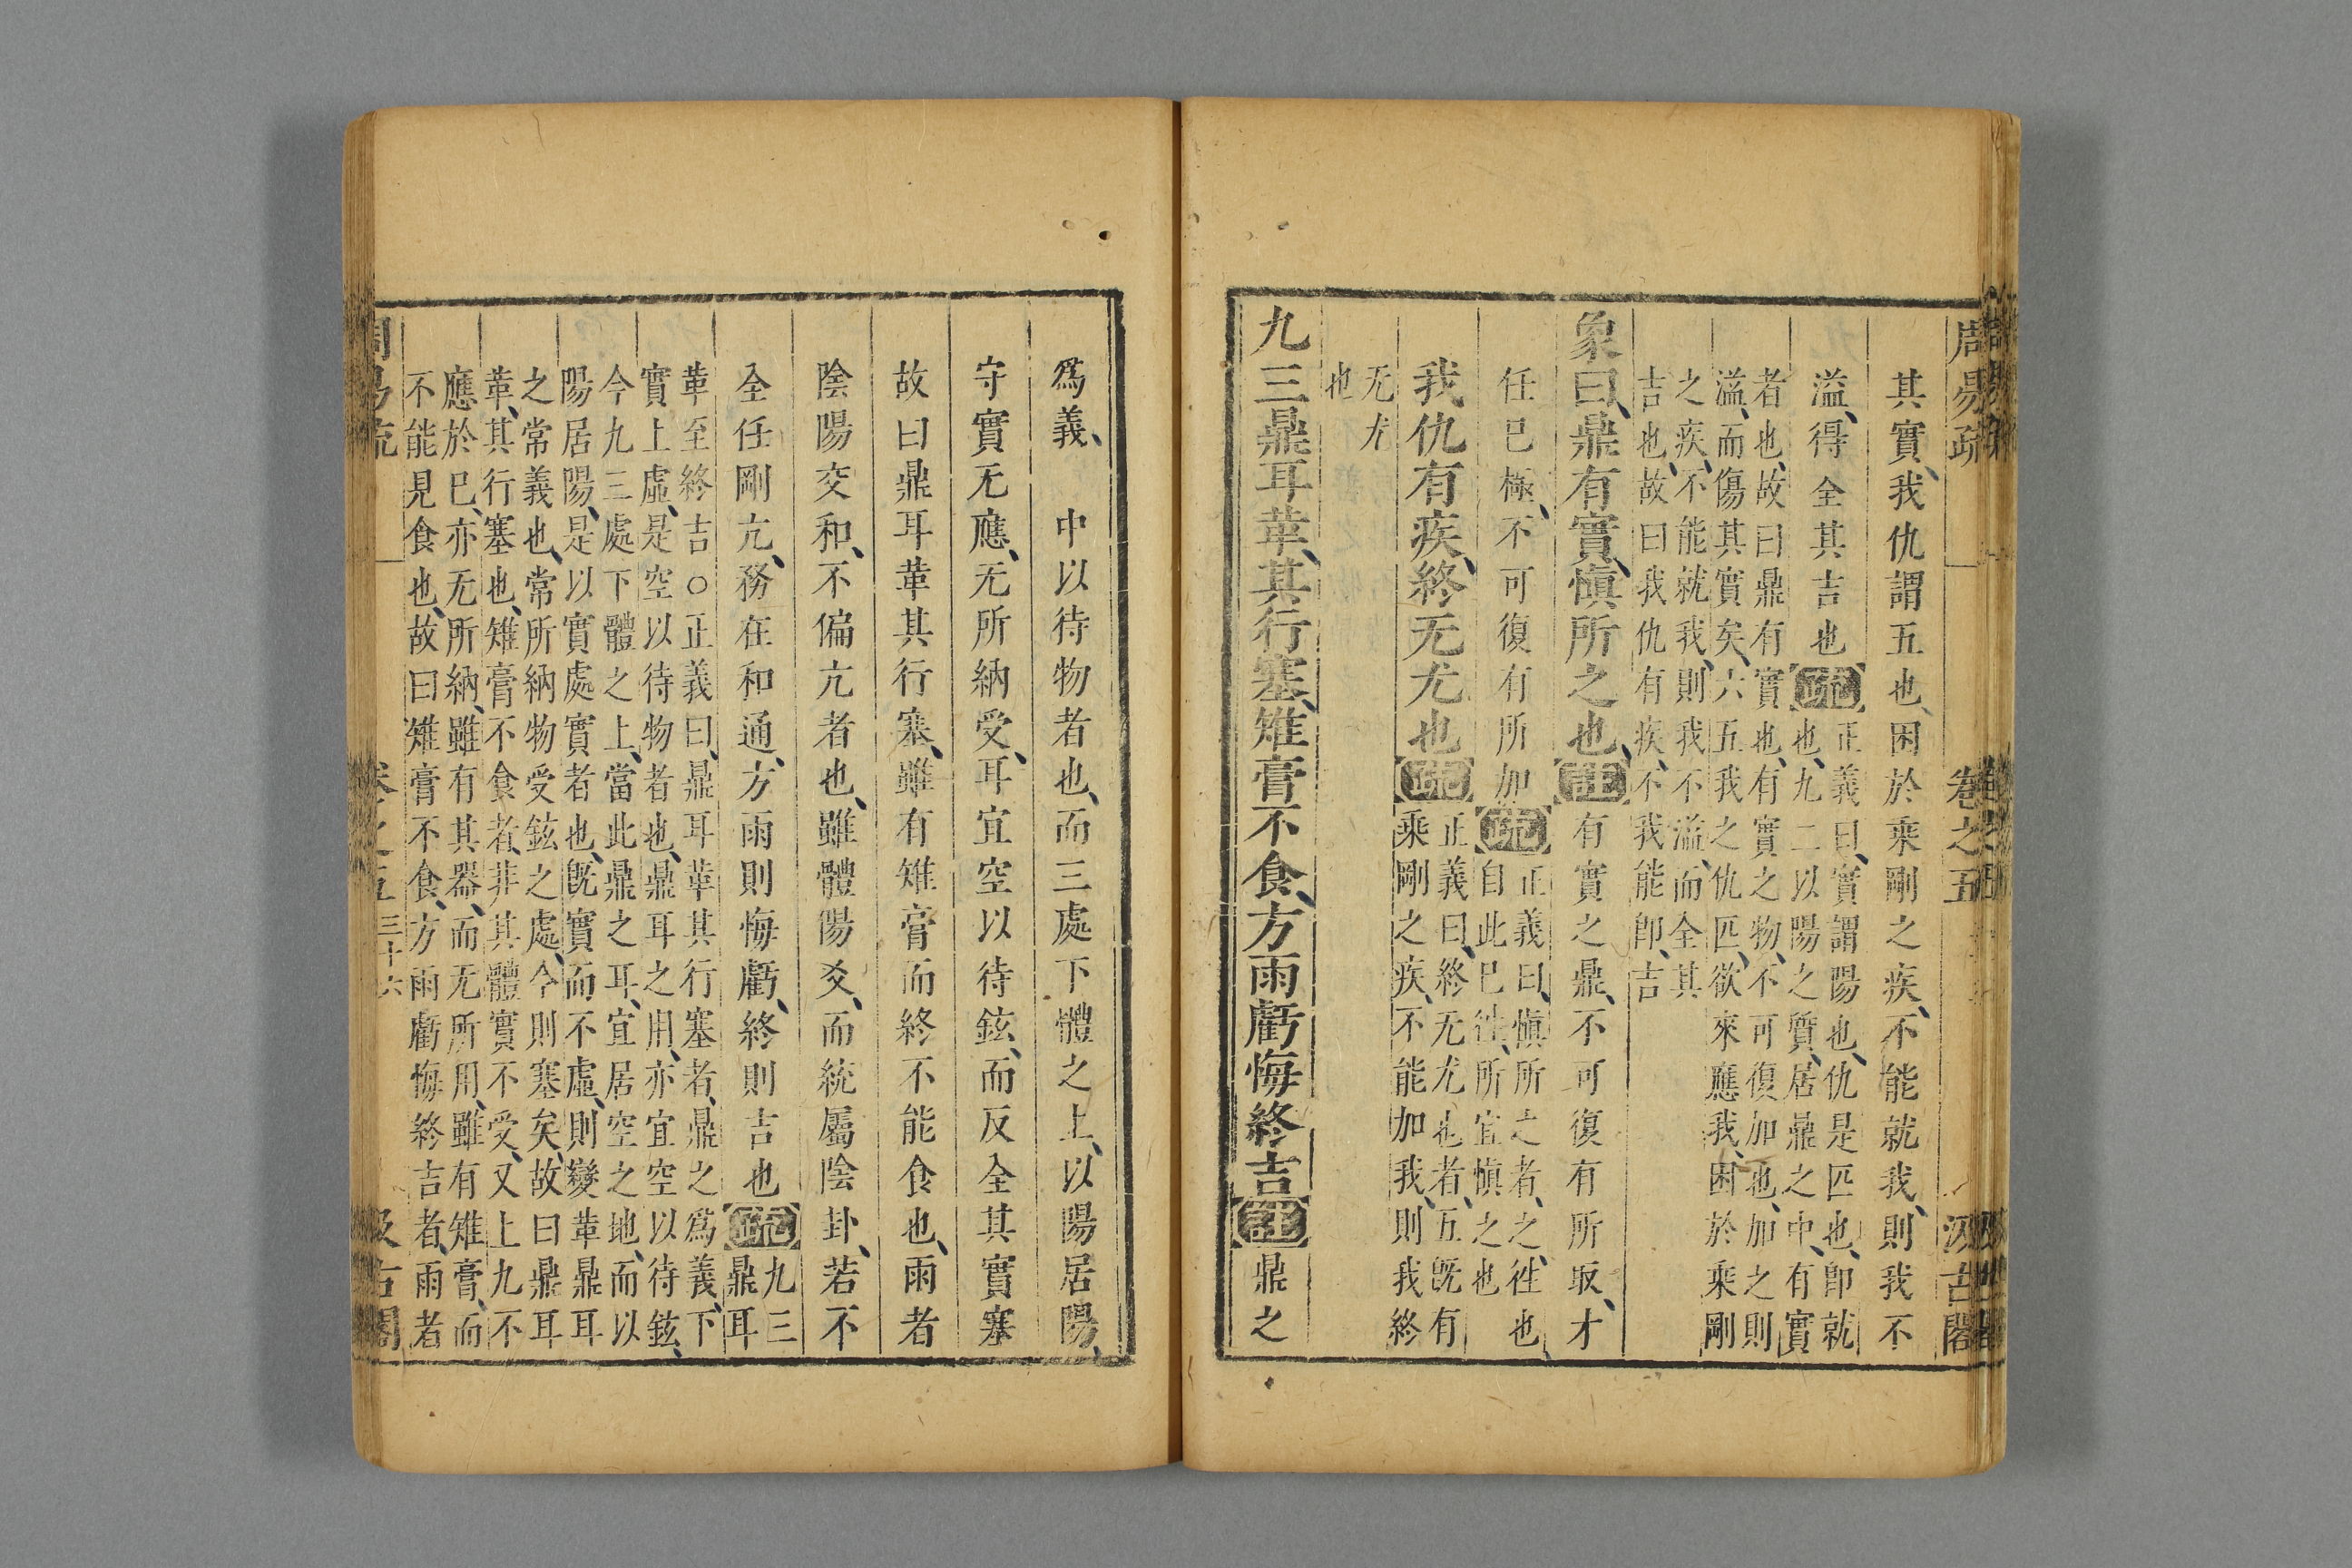 周易疏 卷之五 汲古閣
其實、我仇謂五也、困於乘剛之疾、不能就我、則我不
溢、得全其吉也疏
正義曰、實謂陽也、仇是匹也、卽就
也、九二以陽之質、居鼎之中、有實
者也、故曰鼎有實也、有實之物、不可復加也、加之則
溢、而傷其實矣、六五我之仇匹、欲來應我、困於乘剛
之疾、不能就我、則我不溢、而全其
吉也、故曰我仇有疾、不我能卽、吉
象曰、鼎有實、愼所之也、註有實之鼎、不可復有所取、才
任已極、不可復有所加疏
正義曰、愼所之者、之、往也、
自此已往、所宜愼之也
我仇有疾、終无尤也疏
正義曰、終无尤也者、五旣有
乘剛之疾、不能加我、則我終
无尤
也
九三鼎耳革、其行塞、雉膏不食、方雨虧悔終吉註鼎之
爲義、中以待物者也、而三處下體之上、以陽居陽、
守實无應、无所納受、耳宜空以待鉉、而反全其實塞
故曰鼎耳革其行塞、雖有雉膏而終不能食也、雨者
陰陽交和、不偏亢者也、雖體陽爻、而統屬陰卦、若不
全任剛亢、務在和通、方雨則悔虧、終則吉也疏
九三
鼎耳
革至終吉○正義曰、鼎耳革其行塞者、鼎之爲義、下
實上虛、是空以待物者也、鼎耳之用、亦宜空以待鉉、
今九三處下體之上、當此鼎之耳、宜居空之地、而以
陽居陽、是以實處實者也、旣實而不虛、則變革鼎耳
之常義也、常所納物受鉉之處、今則塞矣、故曰鼎耳
革、其行塞也、雉膏不食者、非其體實不受、又上九不
應於已、亦无所納、雖有其器、而无所用、雖有雉膏、而
不能見食也、故曰雉膏不食、方雨虧悔終吉者、雨者
周易疏 卷之五 三十六 汲古閣